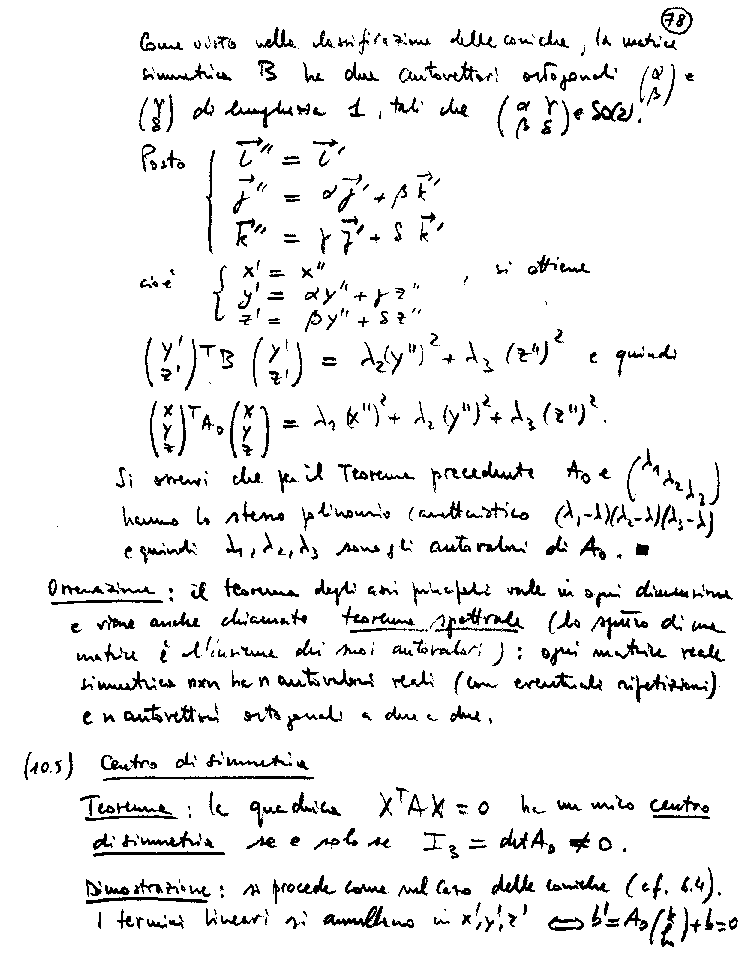 78
Come visto nella classificazione delle coniche, la matrice
simmetrica B ha due autovettori ortogonali (α β) e
(γ δ) di lunghezza 1, tali che (α γ β δ) ∈ SO(2).
Posto { i⃗'' = i⃗'
j⃗'' = αj⃗' + βk⃗'
k⃗'' = γj⃗' + δk⃗'
cioè { x' = x'' , si ottiene
y' = αy'' + γz''
z' = βy'' + δz''
(y' z')ᵀ B (y' z') = λ₂(y'')² + λ₃(z'')² e quindi
(x y z)ᵀ A₀ (x y z) = λ₁(x'')² + λ₂(y'')² + λ₃(z'')².
Si osservi che per il Teorema precedente A₀ e (λ₁ λ₂ λ₃)
hanno lo stesso polinomio caratteristico (λ₁-λ)(λ₂-λ)(λ₃-λ)
e quindi λ₁, λ₂, λ₃ sono gli autovalori di A₀. ■
Osservazione: il teorema degli assi principali vale in ogni dimensione
e viene anche chiamato teorema spettrale (lo spettro di una
matrice è l'insieme dei suoi autovalori): ogni matrice reale
simmetrica nxn ha n autovalori reali (con eventuali ripetizioni)
e n autovettori ortogonali a due a due.
(10.5) Centro di simmetria
Teorema: la quadrica XᵀAX = 0 ha un unico centro
di simmetria se e solo se I₃ = det A₀ ≠ 0.
Dimostrazione: si procede come nel caso delle coniche (cf. 8.4).
I termini lineari si annullano in x', y', z' ⟺ b' = A₀(k l m) + b = 0